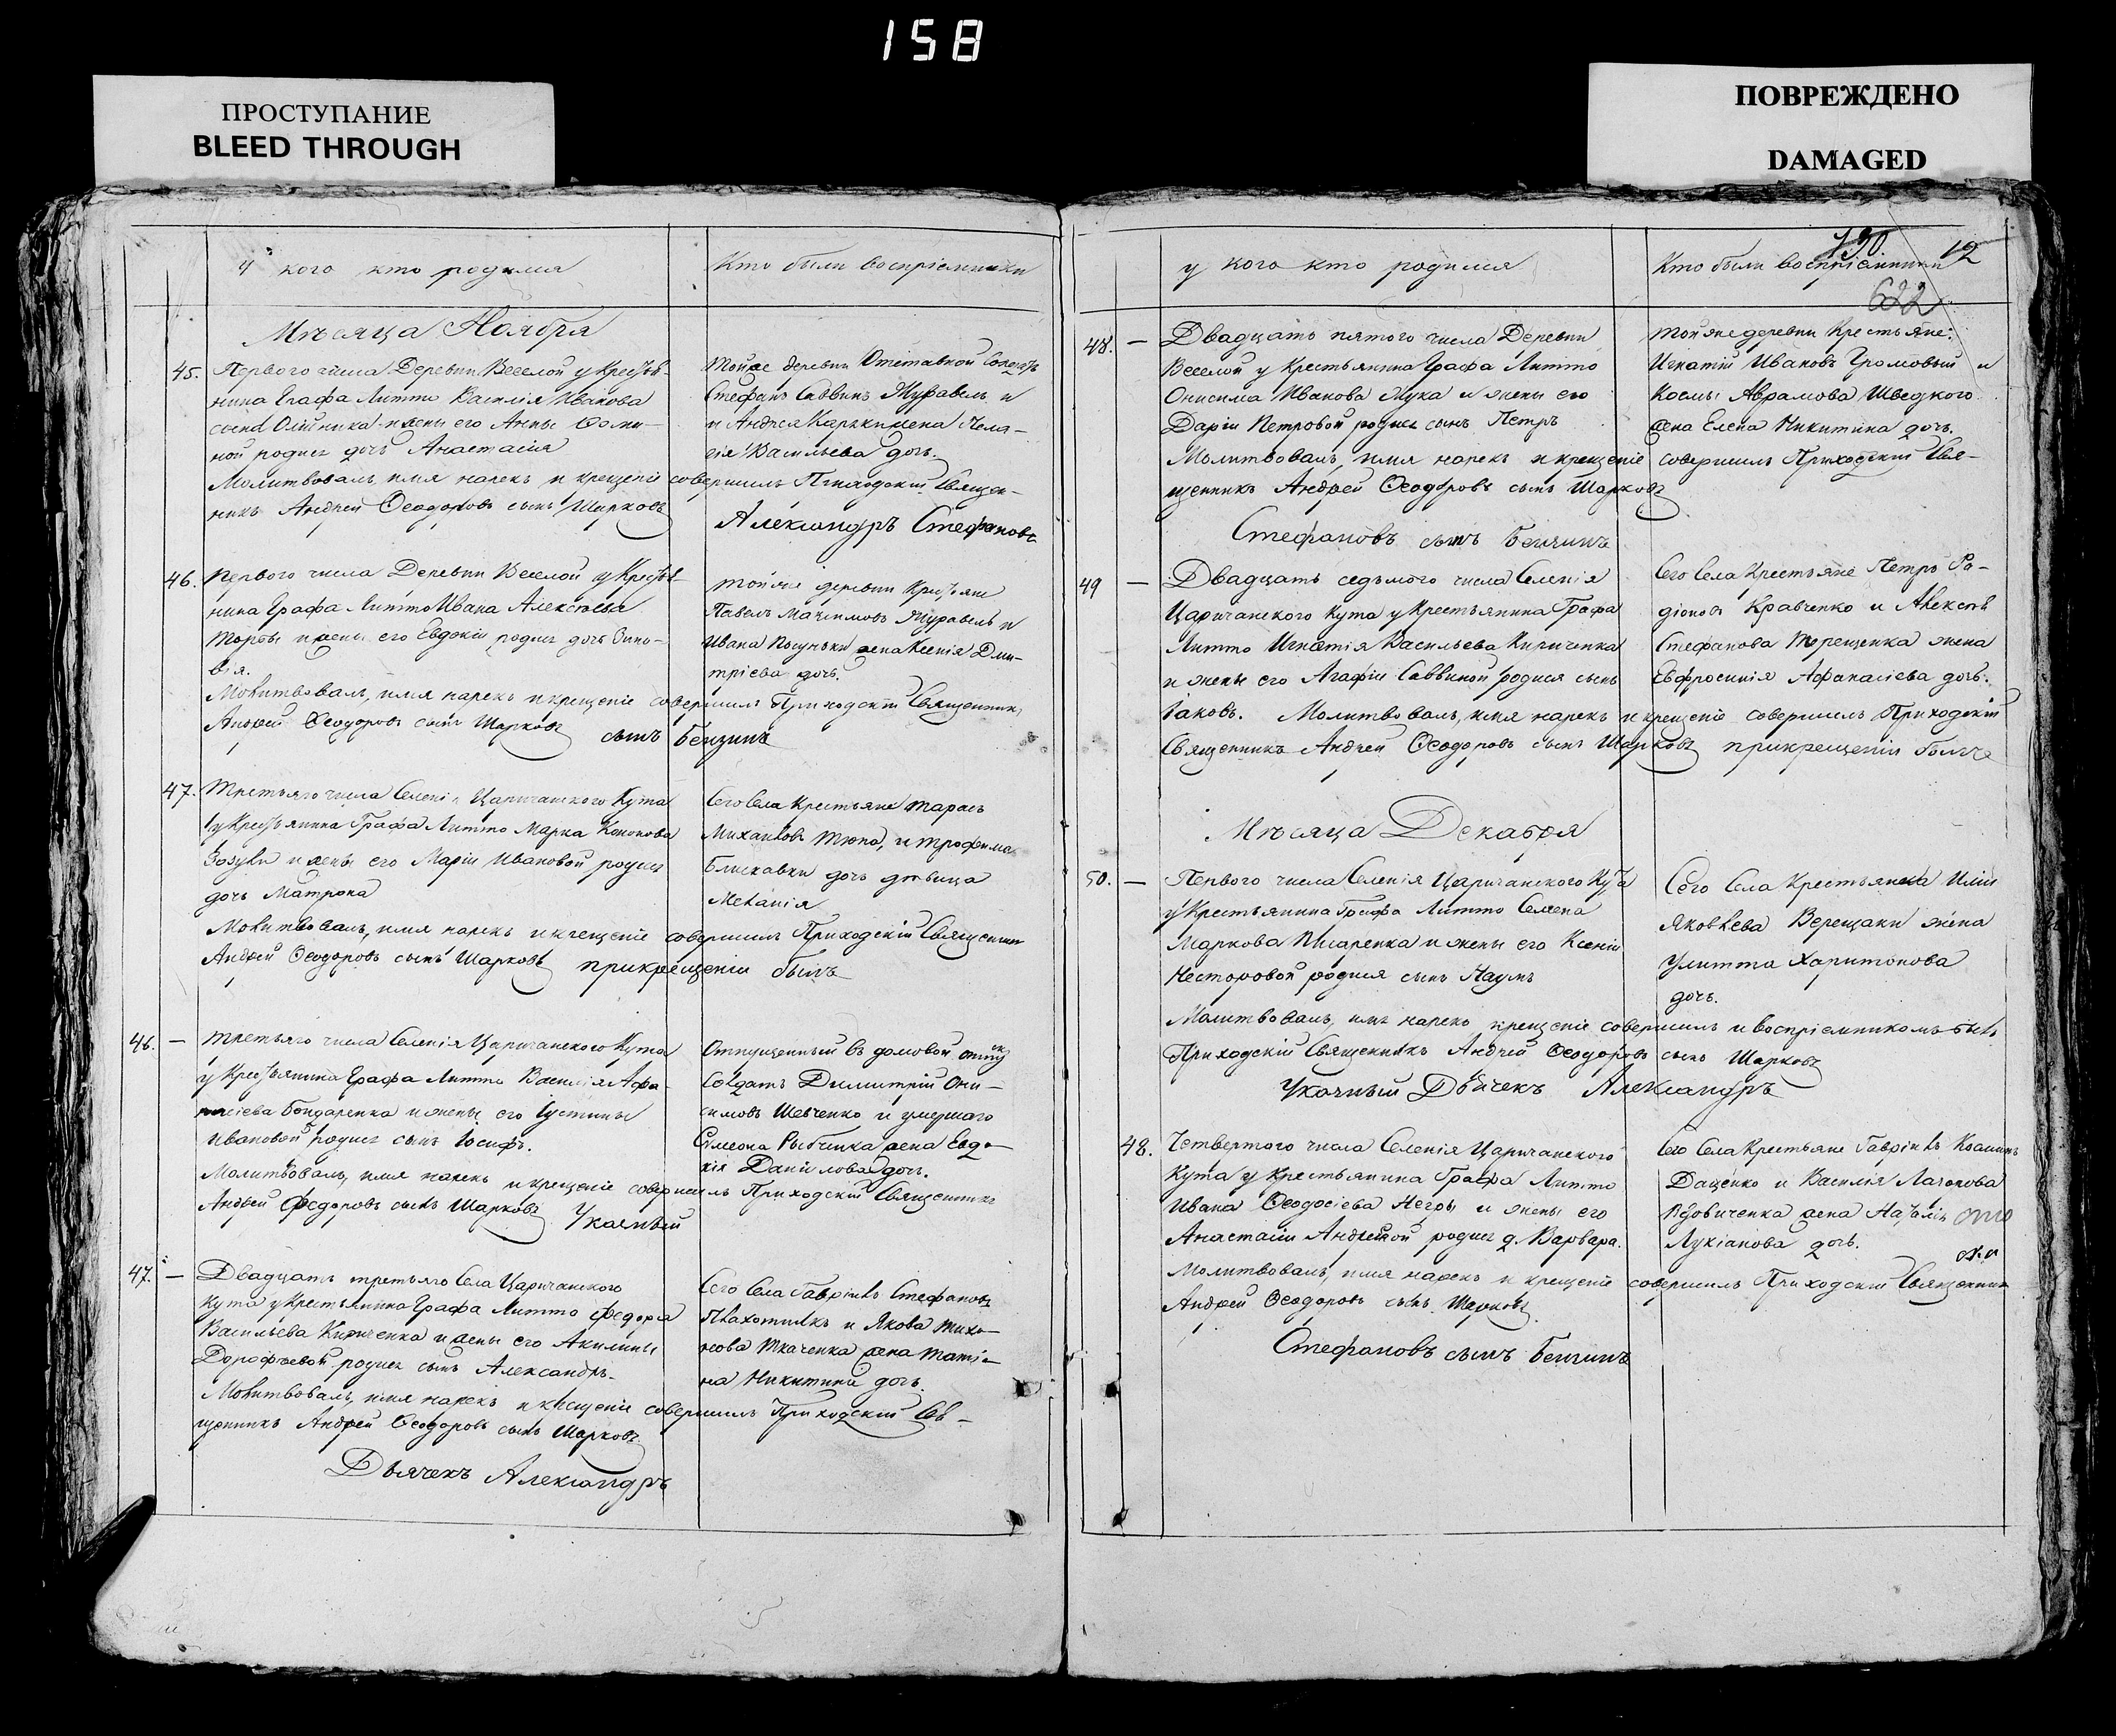 158
ПРОСТУПАНИЕ
BLEED THROUGH
ПОВРЕЖДЕНО
DAMAGED
У кого кто родился
Кто были воспріемники
Мѣсяца Ноября
45. Первого числа Деревни Веселой у Крестья-
нина Графа Литто Василія Иванова
сына Олійника и жены его Анны Фоми-
ной родися дочь Анастасія
Тойже деревни Отставной Солдатъ
Стефанъ Саввинъ Журавель и
и Андрея жена Пела-
гія Васильева дочь.
Молитвовалъ, имя нарекъ и крещеніе совершилъ Приходскій Священ-
никъ Андрей Ѳеодоровъ сынъ Шарковъ
Александръ Стефановъ
46. Первого числа Деревни Веселой у Крестья-
нина Графа Литто Ивана Алексѣева
и жены его Евдокіи родися дочь Зино-
вія.
Тойже деревни Крестьяне
Павелъ Максимовъ Журавель и
Ивана жена Ксенія Дми-
тріева дочь.
Молитвовалъ, имя нарекъ и крещеніе совершилъ Приходскій Священникъ
Андрей Ѳеодоровъ сынъ Шарковъ сынъ Бензинъ
47. Третьяго числа Селенія Царичанского Кута
у Крестьянина Графа Литто Марка Кононова
Зозули и жены его Маріи Ивановой родися
дочь Матрона
Сего Села Крестьяне Тарасъ
Михайловъ Тюпа, и Трофима
Блискавки дочь дѣвица
Меланія
Молитвовалъ, имя нарекъ и крещеніе совершилъ Приходскій Священникъ
Андрей Ѳеодоровъ сынъ Шарковъ прикрещеніи былъ
46. — Третьяго числа Селенія Царичанского Кута
у Крестьянина Графа Литто Василія Афа-
насіева Бондаренка и жены его Іустины
Ивановой родися сынъ Іосифъ.
Отпущенный въ домовой отпускъ
Солдатъ Димитрій Они-
симовъ Шевченко и умершаго
Симеона жена Евдо-
кія Данилова дочь.
Молитвовалъ, имя нарекъ и крещеніе совершилъ Приходскій Священникъ
Андрей Федоровъ сынъ Шарковъ Указный
47. — Двадцать третьяго Села Царичанского
Кута у Крестьянина Графа Литто Федора
Васильева Кириченка и жены его Акилины
Дорофѣевой родися сынъ Александръ.
Сего Села Гавріилъ Стефановъ
Плахотникъ и Якова Тихо-
нова Ткаченка жена Татія-
на Никитина дочь.
Молитвовалъ, имя нарекъ и крещеніе совершилъ Приходскій Св-
щенникъ Андрей Ѳеодоровъ сынъ Шарковъ
Дьячекъ Александръ
у кого кто родился
Кто были воспріемники
12
622
48. — Двадцать пятого числа Деревни
Веселой у Крестьянина Графа Литто
Онисима Иванова и жены его
Даріи Петровой родися сынъ Петръ
Тойже деревни Крестьяне:
Игнатій Ивановъ Громовый и
Космы Аврамова Шведкого
жена Елена Никитина дочь.
Молитвовалъ, имя нарекъ и крещеніе совершилъ Приходскій Свя-
щенникъ Андрей Ѳеодоровъ сынъ Шарковъ
Стефановъ сынъ Бензинъ
49 — Двадцать седьмого числа Селенія
Царичанского Кута у Крестьянина Графа
Литто Игнатія Васильева Кириченка
и жены его Агафіи Саввиной родися сынъ
Іаковъ. Молитвовалъ, имя нарекъ и крещеніе совершилъ Приходскій
Сего Села Крестьяне Петръ Ра-
діоновъ Кравченко и Алексѣя
Стефанова Терещенка жена
Евфросинія Афанасіева дочь.
Священникъ Андрей Ѳеодоровъ сынъ Шарковъ прикрещеніи былъ
Мѣсяца Декабря
50. — Первого числа Селенія Царичанского Кута
у Крестьянина Графа Литто Семена
Маркова Писаренка и жены его Ксеніи
Несторовой родися сынъ Наумъ
Сего Села Крестьянина Иліи
Яковлева Верещаки жена
Улитта Харитонова
дочь.
Молитвовалъ, имя нарекъ крещеніе совершилъ и воспріемникомъ былъ
Приходскій Священникъ Андрей Ѳеодоровъ сынъ Шарковъ
Указный Дьячекъ Александръ
48. Четвертого числа Селенія Царичанского
Кута у Крестьянина Графа Литто
Ивана Ѳеодосіева Негры и жены его
Анастасіи Андреевой родися д. Варвара.
Сего Села Крестьяне Гавріилъ Косминъ
Даценко и Василія Лазорова
Вдовиченка жена Наталія
Лукіанова дочь.
Молитвовалъ, имя нарекъ и крещеніе совершилъ Приходскій Священникъ
Андрей Ѳеодоровъ сынъ Шарковъ.
Стефановъ сынъ Бензинъ